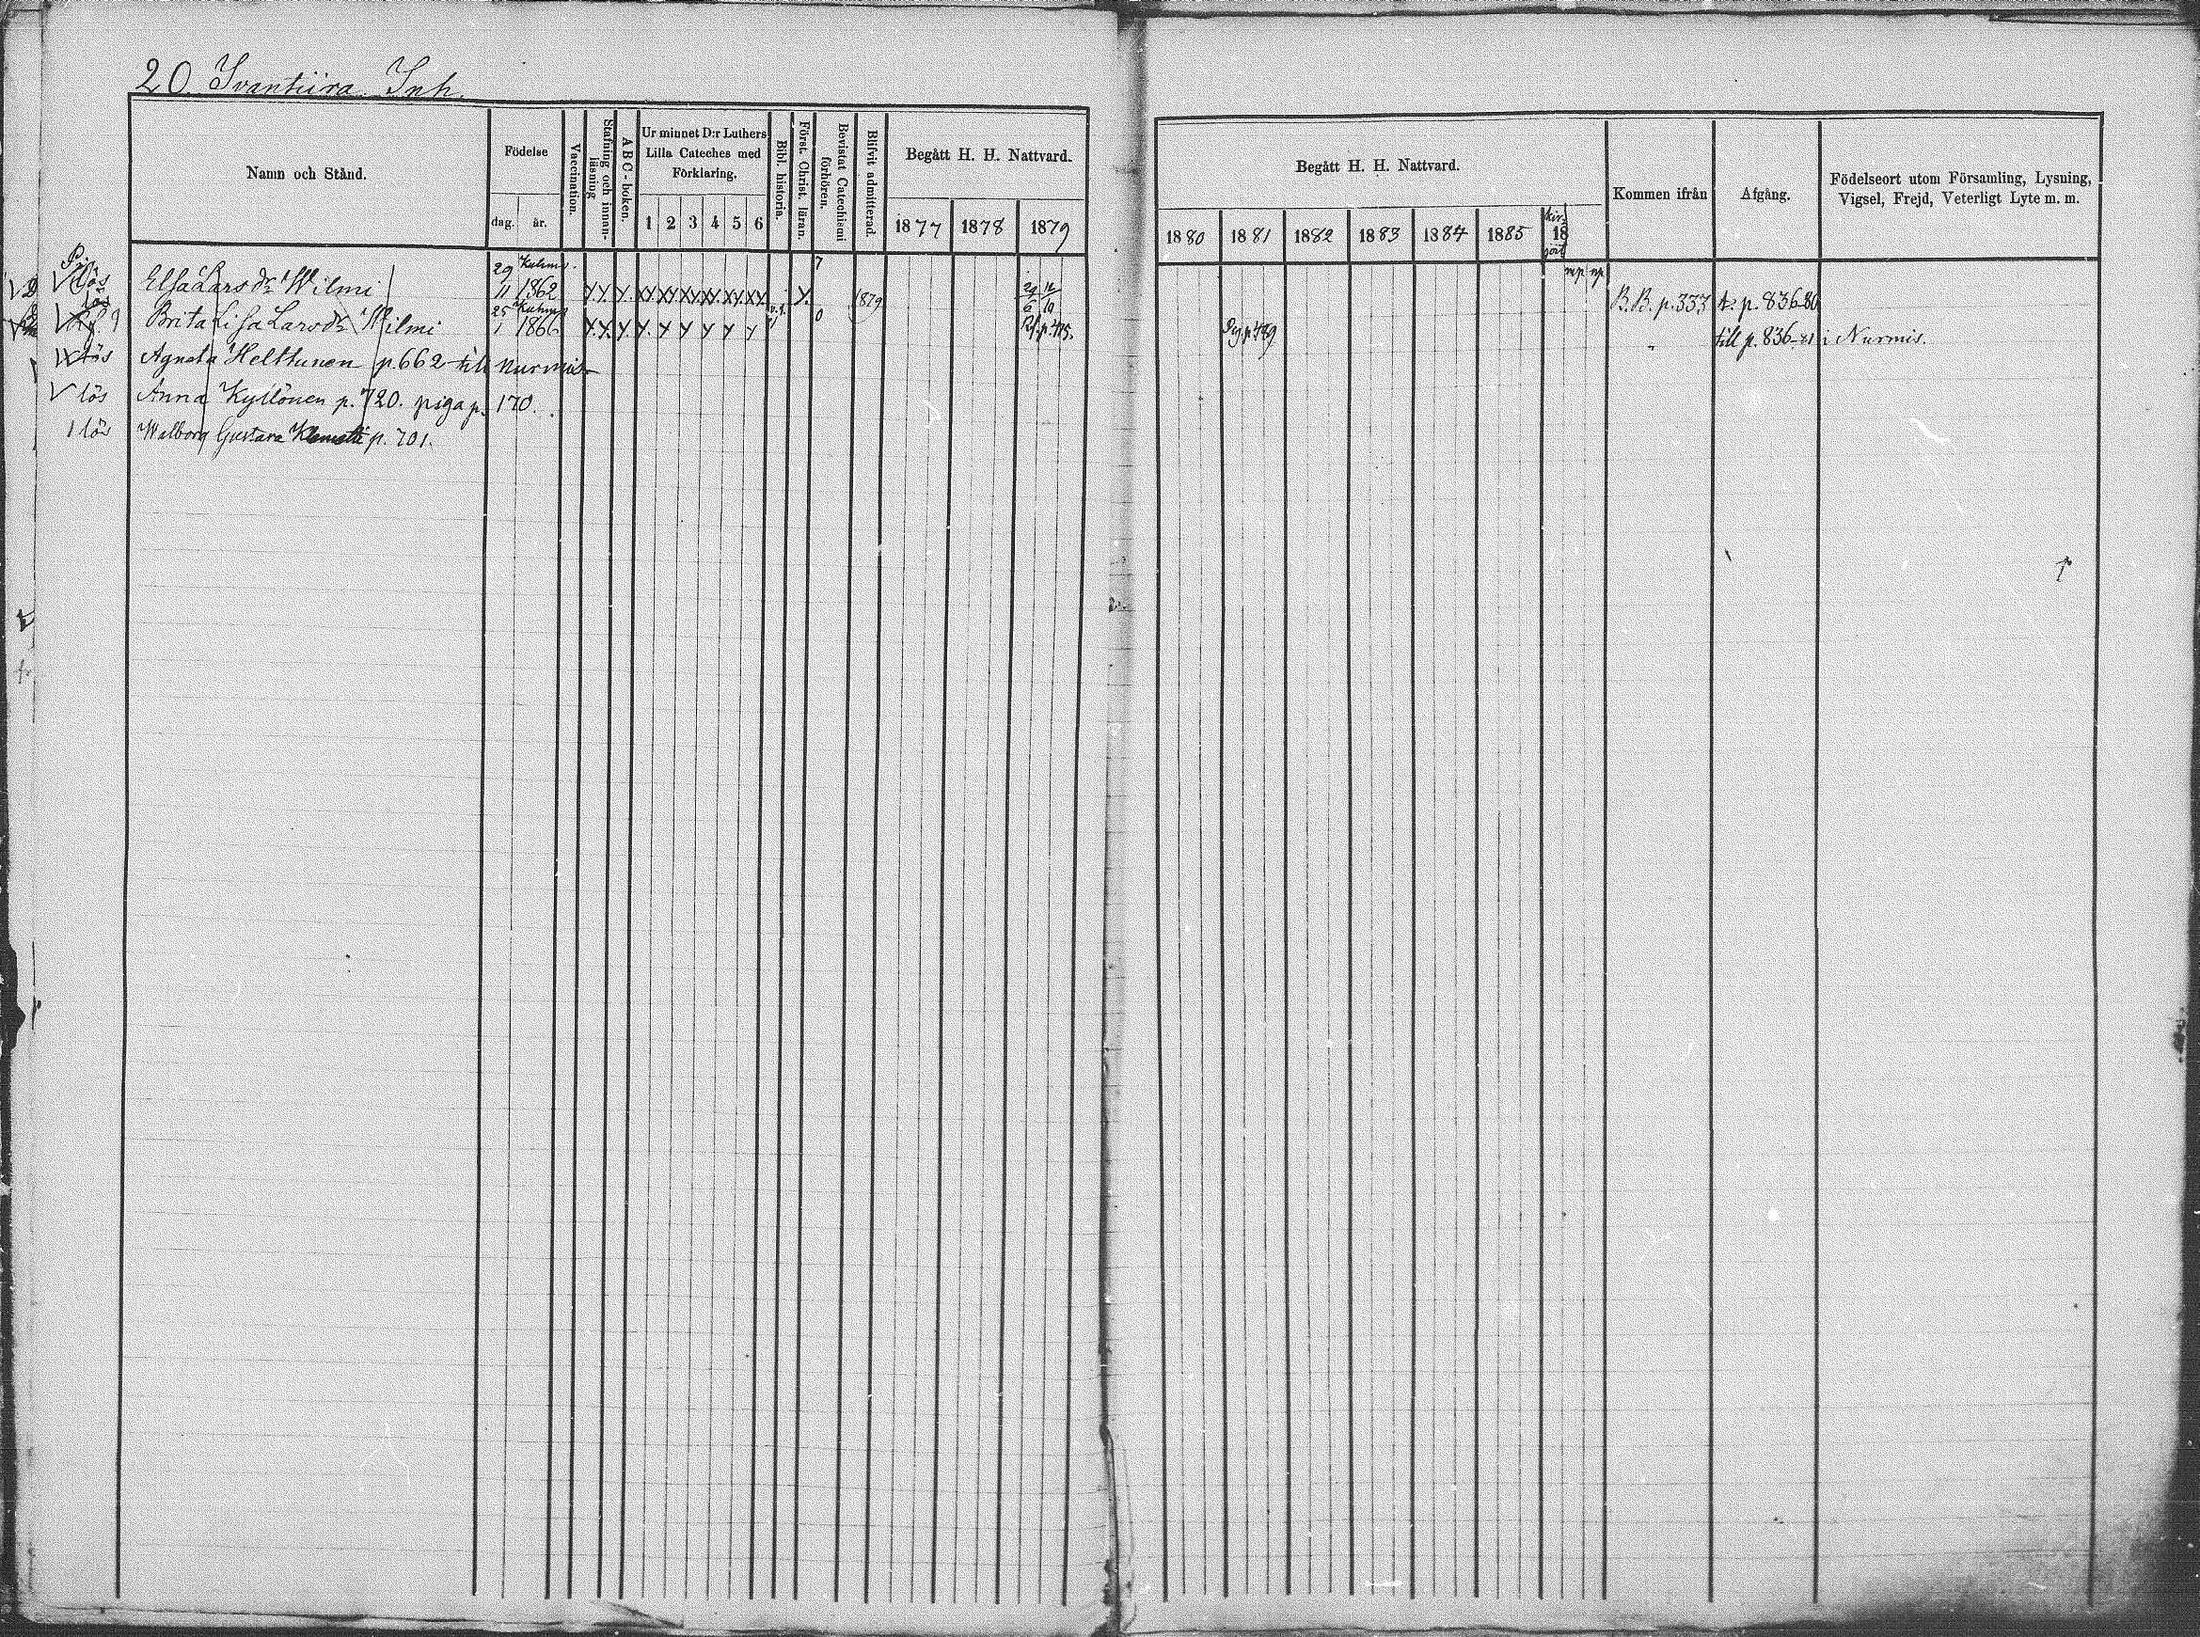 20. Ivantiira Inh.
Namn och Stånd.
Födelse
dag. år.
Vaccination.
Stafning och innan-läsning
ABC-boken.
Ur minnet D:r Luthers Lilla Cateches med Förklaring.
1 2 3 4 5 6
Bibl. historia.
Först. Christ. läran.
Bevistat Catechismi förhören.
Blifvit admitterad.
Begått H. H. Nattvard.
1877 1878 1879
Begått H. H. Nattvard.
1880 1881 1882 1883 1884 1885 18
Kommen ifrån
Afgång.
Födelseort utom Församling, Lysning, Vigsel, Frejd, Veterligt Lyte m. m.
lös Elsa Larsdr Wilmi 29 11 Kuhmo 1862 1879 B.B. p. 333 p. 836-80
Brita Lisa Larsdr Wilmi 25 1 Kuhmo 1866 p. 475. p. 479 " till p. 836-81 i Nurmis.
lös Agneta Helttunen p. 662 till Nurmis
lös Anna Kyllönen p. 720. piga p. 170.
lös Walborg Gustava p. 701.